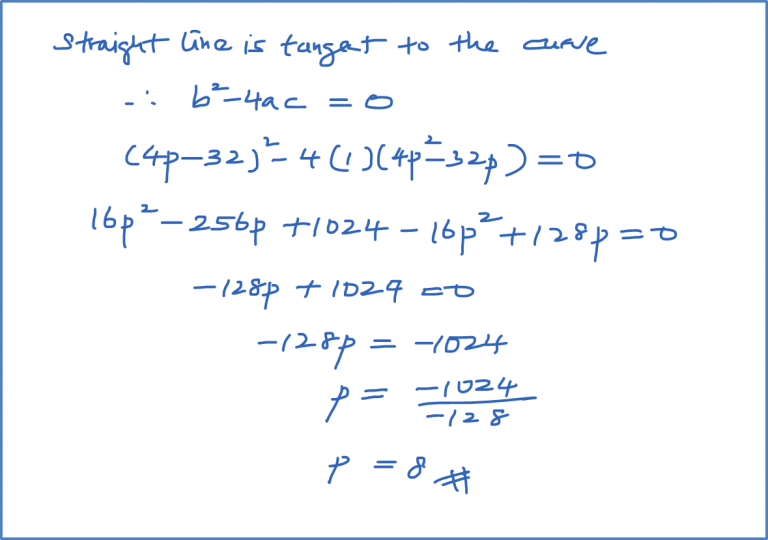 straight line is tangat to the curve
∴ b²-4ac = 0
(4p-32)²-4(1)(4p²-32p)=0
16p²-256p+1024-16p²+128p=0
-128p+1024=0
-128p = -1024
p = -1024/-128
p = 8 #